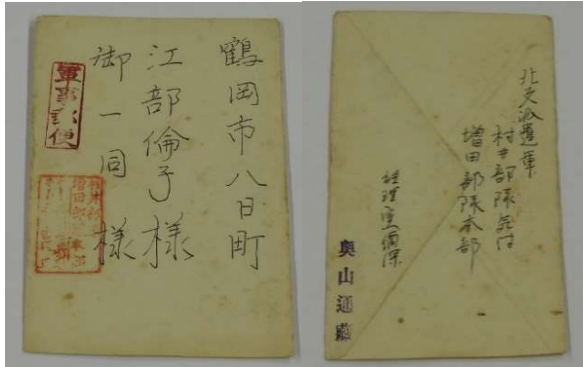 鶴岡市八日町
江部倫子様
御一同様
軍事郵便
増田部隊本部
北支派遣軍
村井部隊気付
増田部隊本部
経理室
奥山通